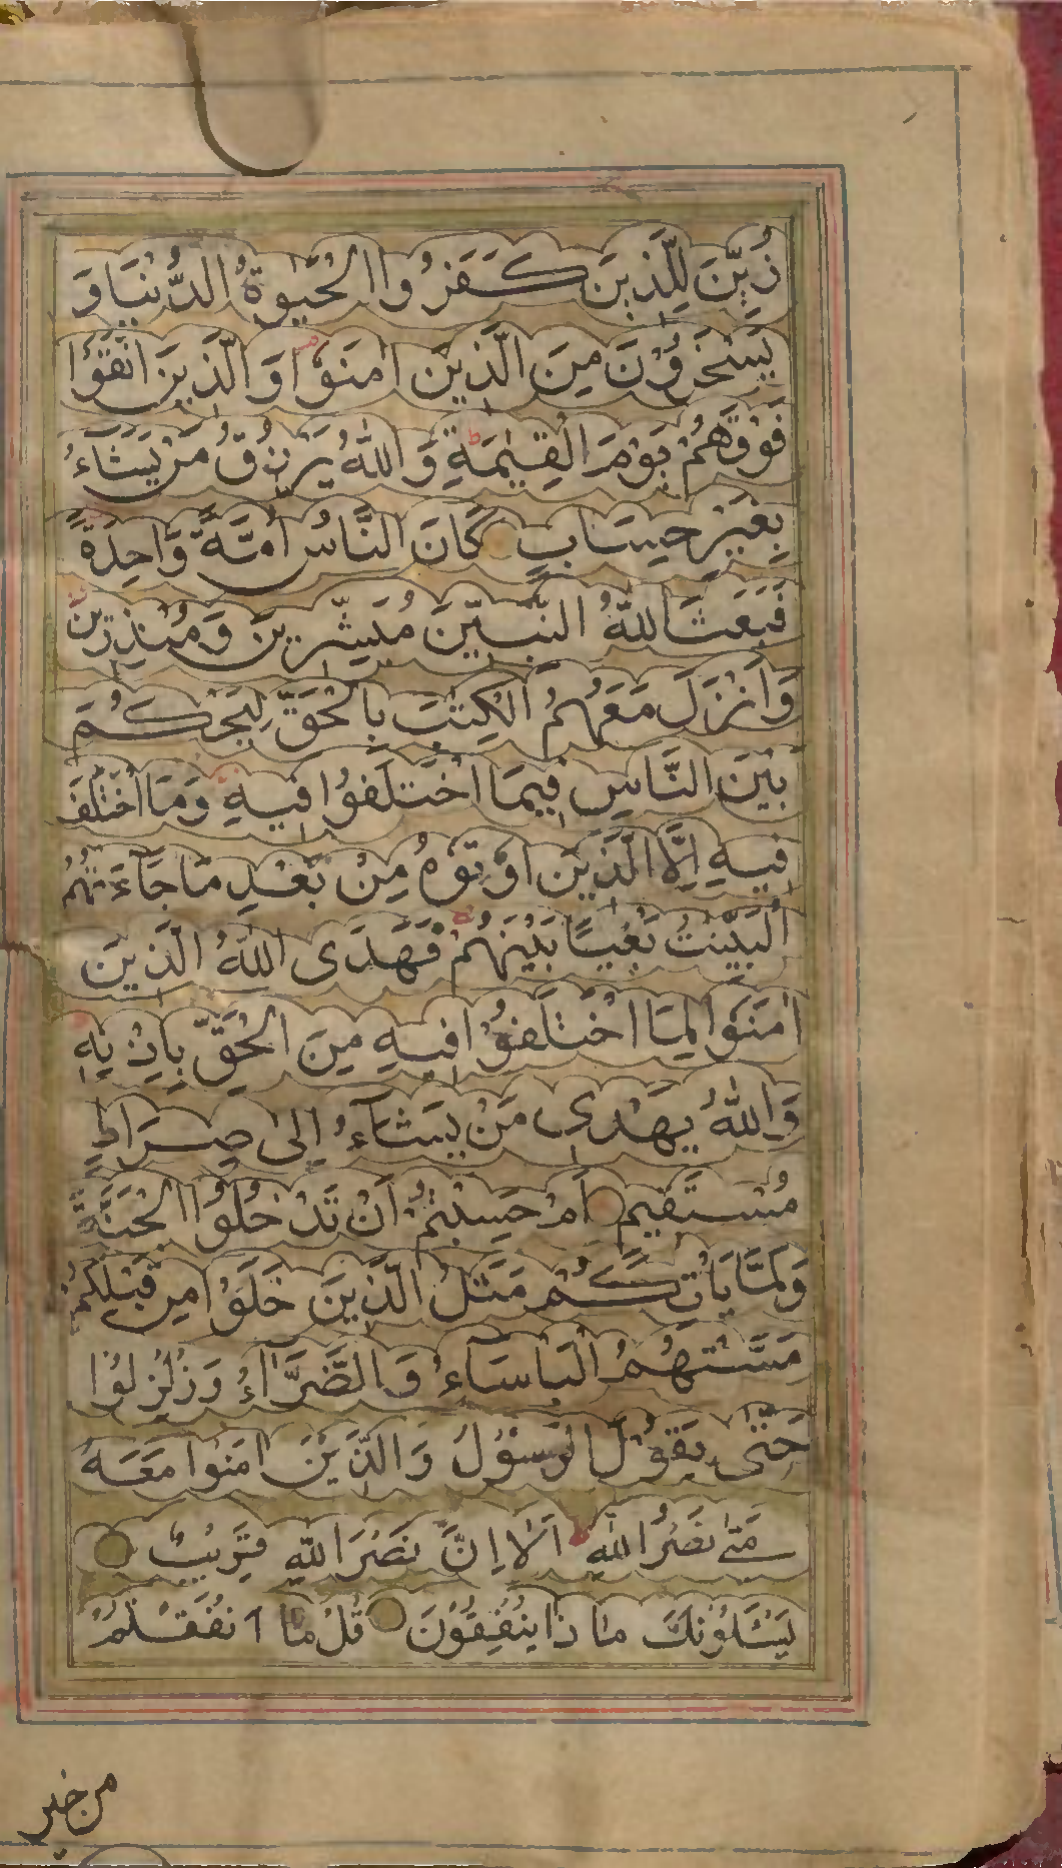 زُيِّنَ لِلَّذِينَ كَفَرُوا الْحَيٰوةُ الدُّنْيَا وَ
يَسْخَرُوْنَ مِنَ الَّذِيْنَ اٰمَنُوْا وَالَّذِيْنَ اتَّقَوْا
فَوْقَهُمْ يَوْمَ الْقِيٰمَةِ وَاللّٰهُ يَرْزُقُ مَنْ يَشَاءُ
بِغَيْرِ حِسَابٍ كَانَ النَّاسُ اُمَّةً وَّاحِدَةً
فَبَعَثَ اللّٰهُ النَّبِيّٖنَ مُبَشِّرِينَ وَمُنْذِرِيْنَ
وَاَنْزَلَ مَعَهُمُ الْكِتٰبَ بِالْحَقِّ لِيَحْكُمَ
بَيْنَ النَّاسِ فِيمَا اخْتَلَفُوْا فِيهِ وَمَا اخْتَلَفَ
فِيهِ اِلَّا الَّذِيْنَ اُوْتُوْهُ مِنْ بَعْدِ مَا جَآءَتْهُمُ
الْبَيِّنٰتُ بَغْيًا بَيْنَهُمْ فَهَدَى اللّٰهُ الَّذِيْنَ
اٰمَنُوْا لِمَا اخْتَلَفُوْا فِيهِ مِنَ الْحَقِّ بِاِذْنِهٖ
وَاللّٰهُ يَهْدِي مَنْ يَشَآءُ اِلىٰ صِرَاطٍ
مُسْتَقِيمٍ اَمْ حَسِبْتُمْ اَنْ تَدْخُلُوا الْجَنَّةَ
وَلَمَّا يَاْتِكُمْ مَثَلُ الَّذِيْنَ خَلَوْا مِنْ قَبْلِكُمْ
مَسَّتْهُمُ الْبَاْسَآءُ وَالضَّرَّآءُ وَزُلْزِلُوْا
حَتّٰى يَقُوْلَ الرَّسُوْلُ وَالَّذِيْنَ اٰمَنُوا مَعَهُ
مَتٰى نَصْرُ اللّٰهِ اَلَا اِنَّ نَصْرَ اللّٰهِ قَرِيْبٌ
يَسْئَلُوْنَكَ مَا ذَا يُنْفِقُوْنَ قُلْ مَا اَنْفَقْتُمْ
من خير